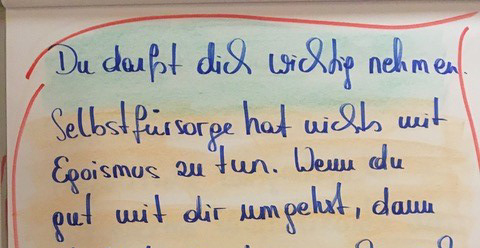 Du darfst dich wichtig nehmen.
Selbstfürsorge hat nichts mit
Egoismus zu tun. Wenn du
gut mit dir umgehst, dann